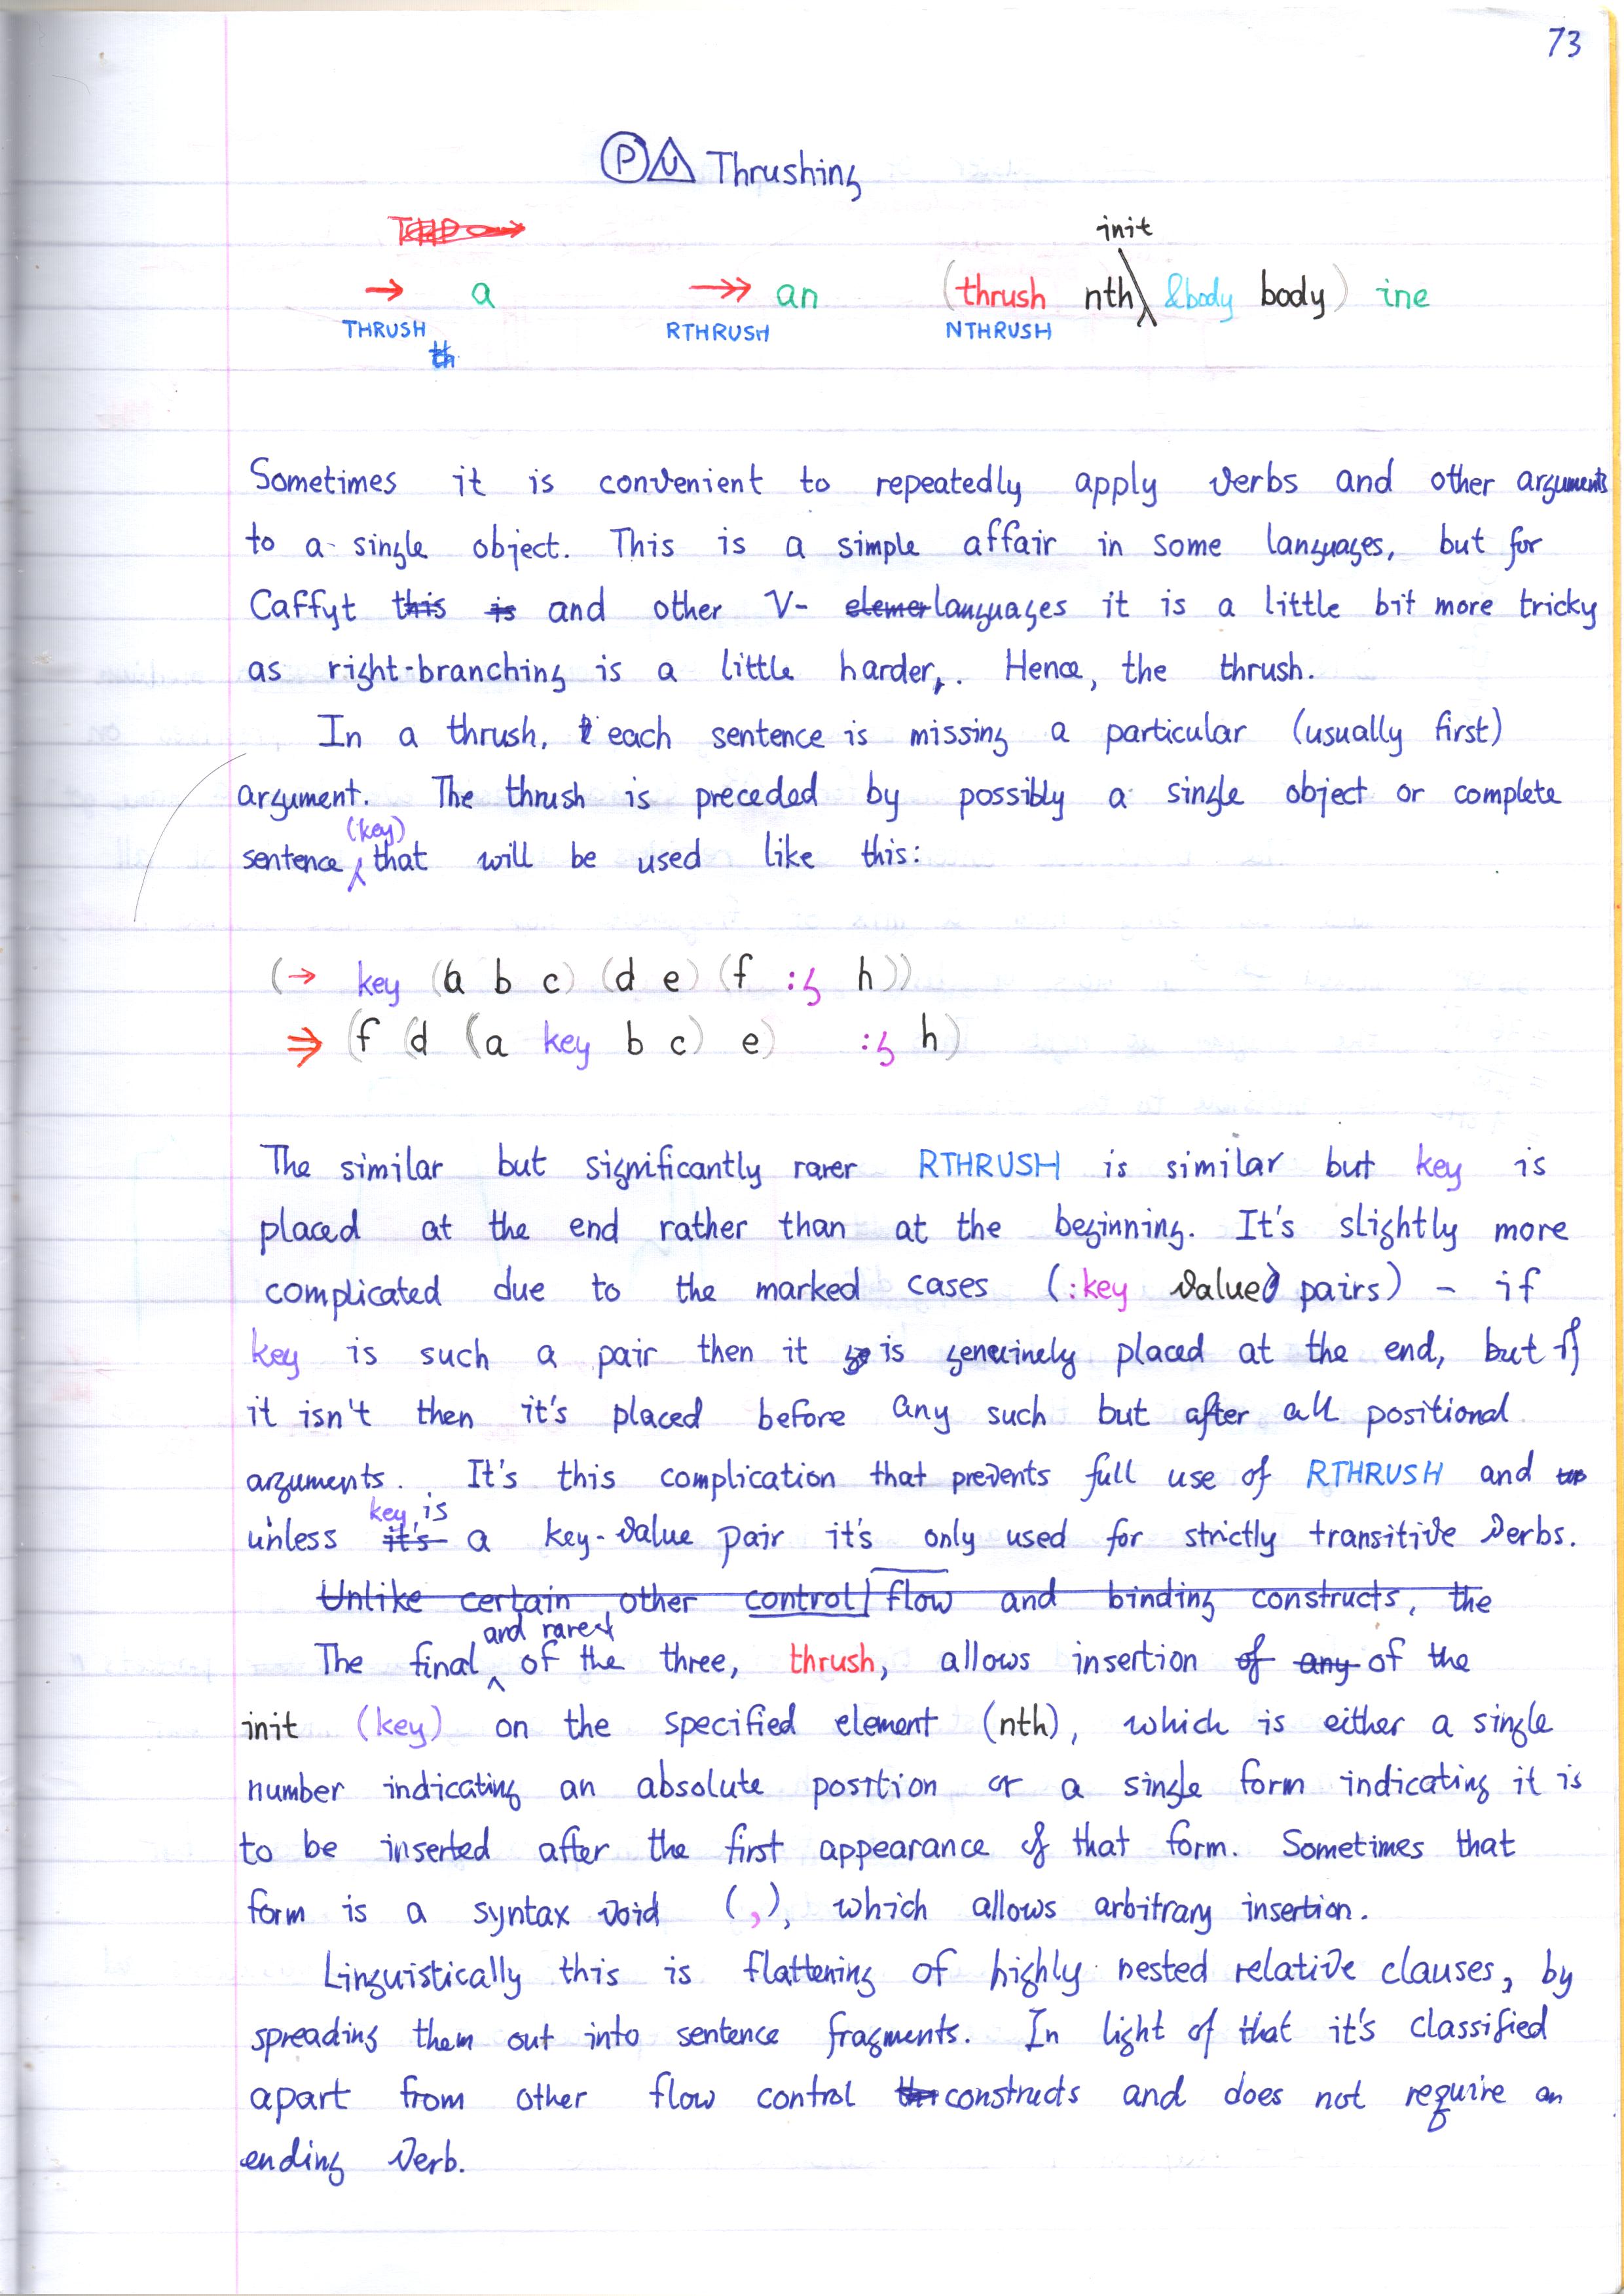 73
P U Thrushing
init
→ a →→ an (thrush nth &body body) ine
THRUSH RTHRUSH NTHRUSH
th
Sometimes it is convenient to repeatedly apply verbs and other arguments
to a single object. This is a simple affair in some languages, but for
Caffyt this is and other V- elemer languages it is a little bit more tricky
as right-branching is a little harder,. Hence, the thrush.
In a thrush, each sentence is missing a particular (usually first)
argument. The thrush is preceded by possibly a single object or complete
(key)
sentence that will be used like this:
(→ key (a b c) (d e) (f :g h))
⇒ (f (d (a key b c) e) :g h)
The similar but significantly rarer RTHRUSH is similar but key is
placed at the end rather than at the beginning. It's slightly more
complicated due to the marked cases (:key value pairs) - if
key is such a pair then it is genuinely placed at the end, but if
it isn't then it's placed before any such but after all positional
arguments. It's this complication that prevents full use of RTHRUSH and
key is
unless it's a key-value pair it's only used for strictly transitive verbs.
Unlike certain other control flow and binding constructs, the
and rarest
The final of the three, thrush, allows insertion of any of the
init (key) on the specified element (nth), which is either a single
number indicating an absolute position or a single form indicating it is
to be inserted after the first appearance of that form. Sometimes that
form is a syntax void (,), which allows arbitrary insertion.
Linguistically this is flattening of highly nested relative clauses, by
spreading them out into sentence fragments. In light of that it's classified
apart from other flow control constructs and does not require an
ending verb.